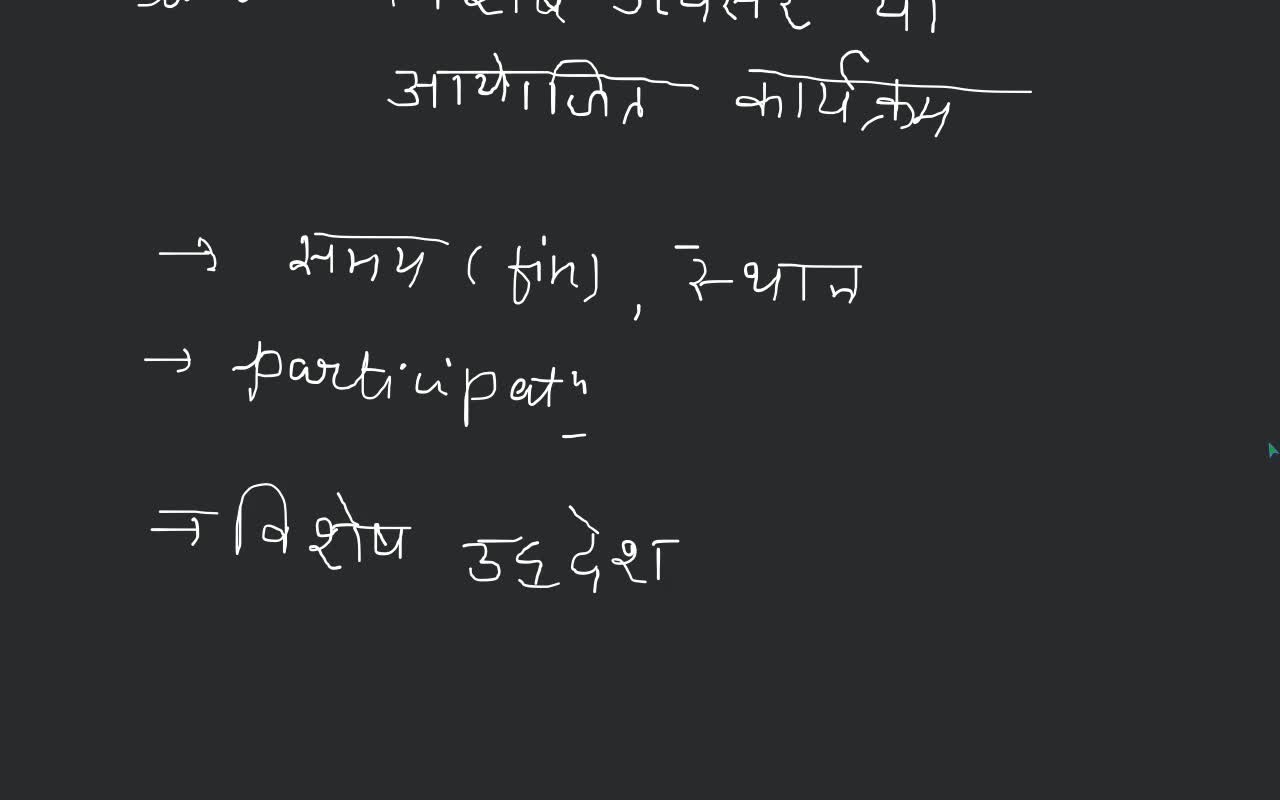 विशेष अवसर या
आयोजित कार्यक्रम
→ समय (fin), स्थान
→ participatn
⇒ विशेष उद्देश